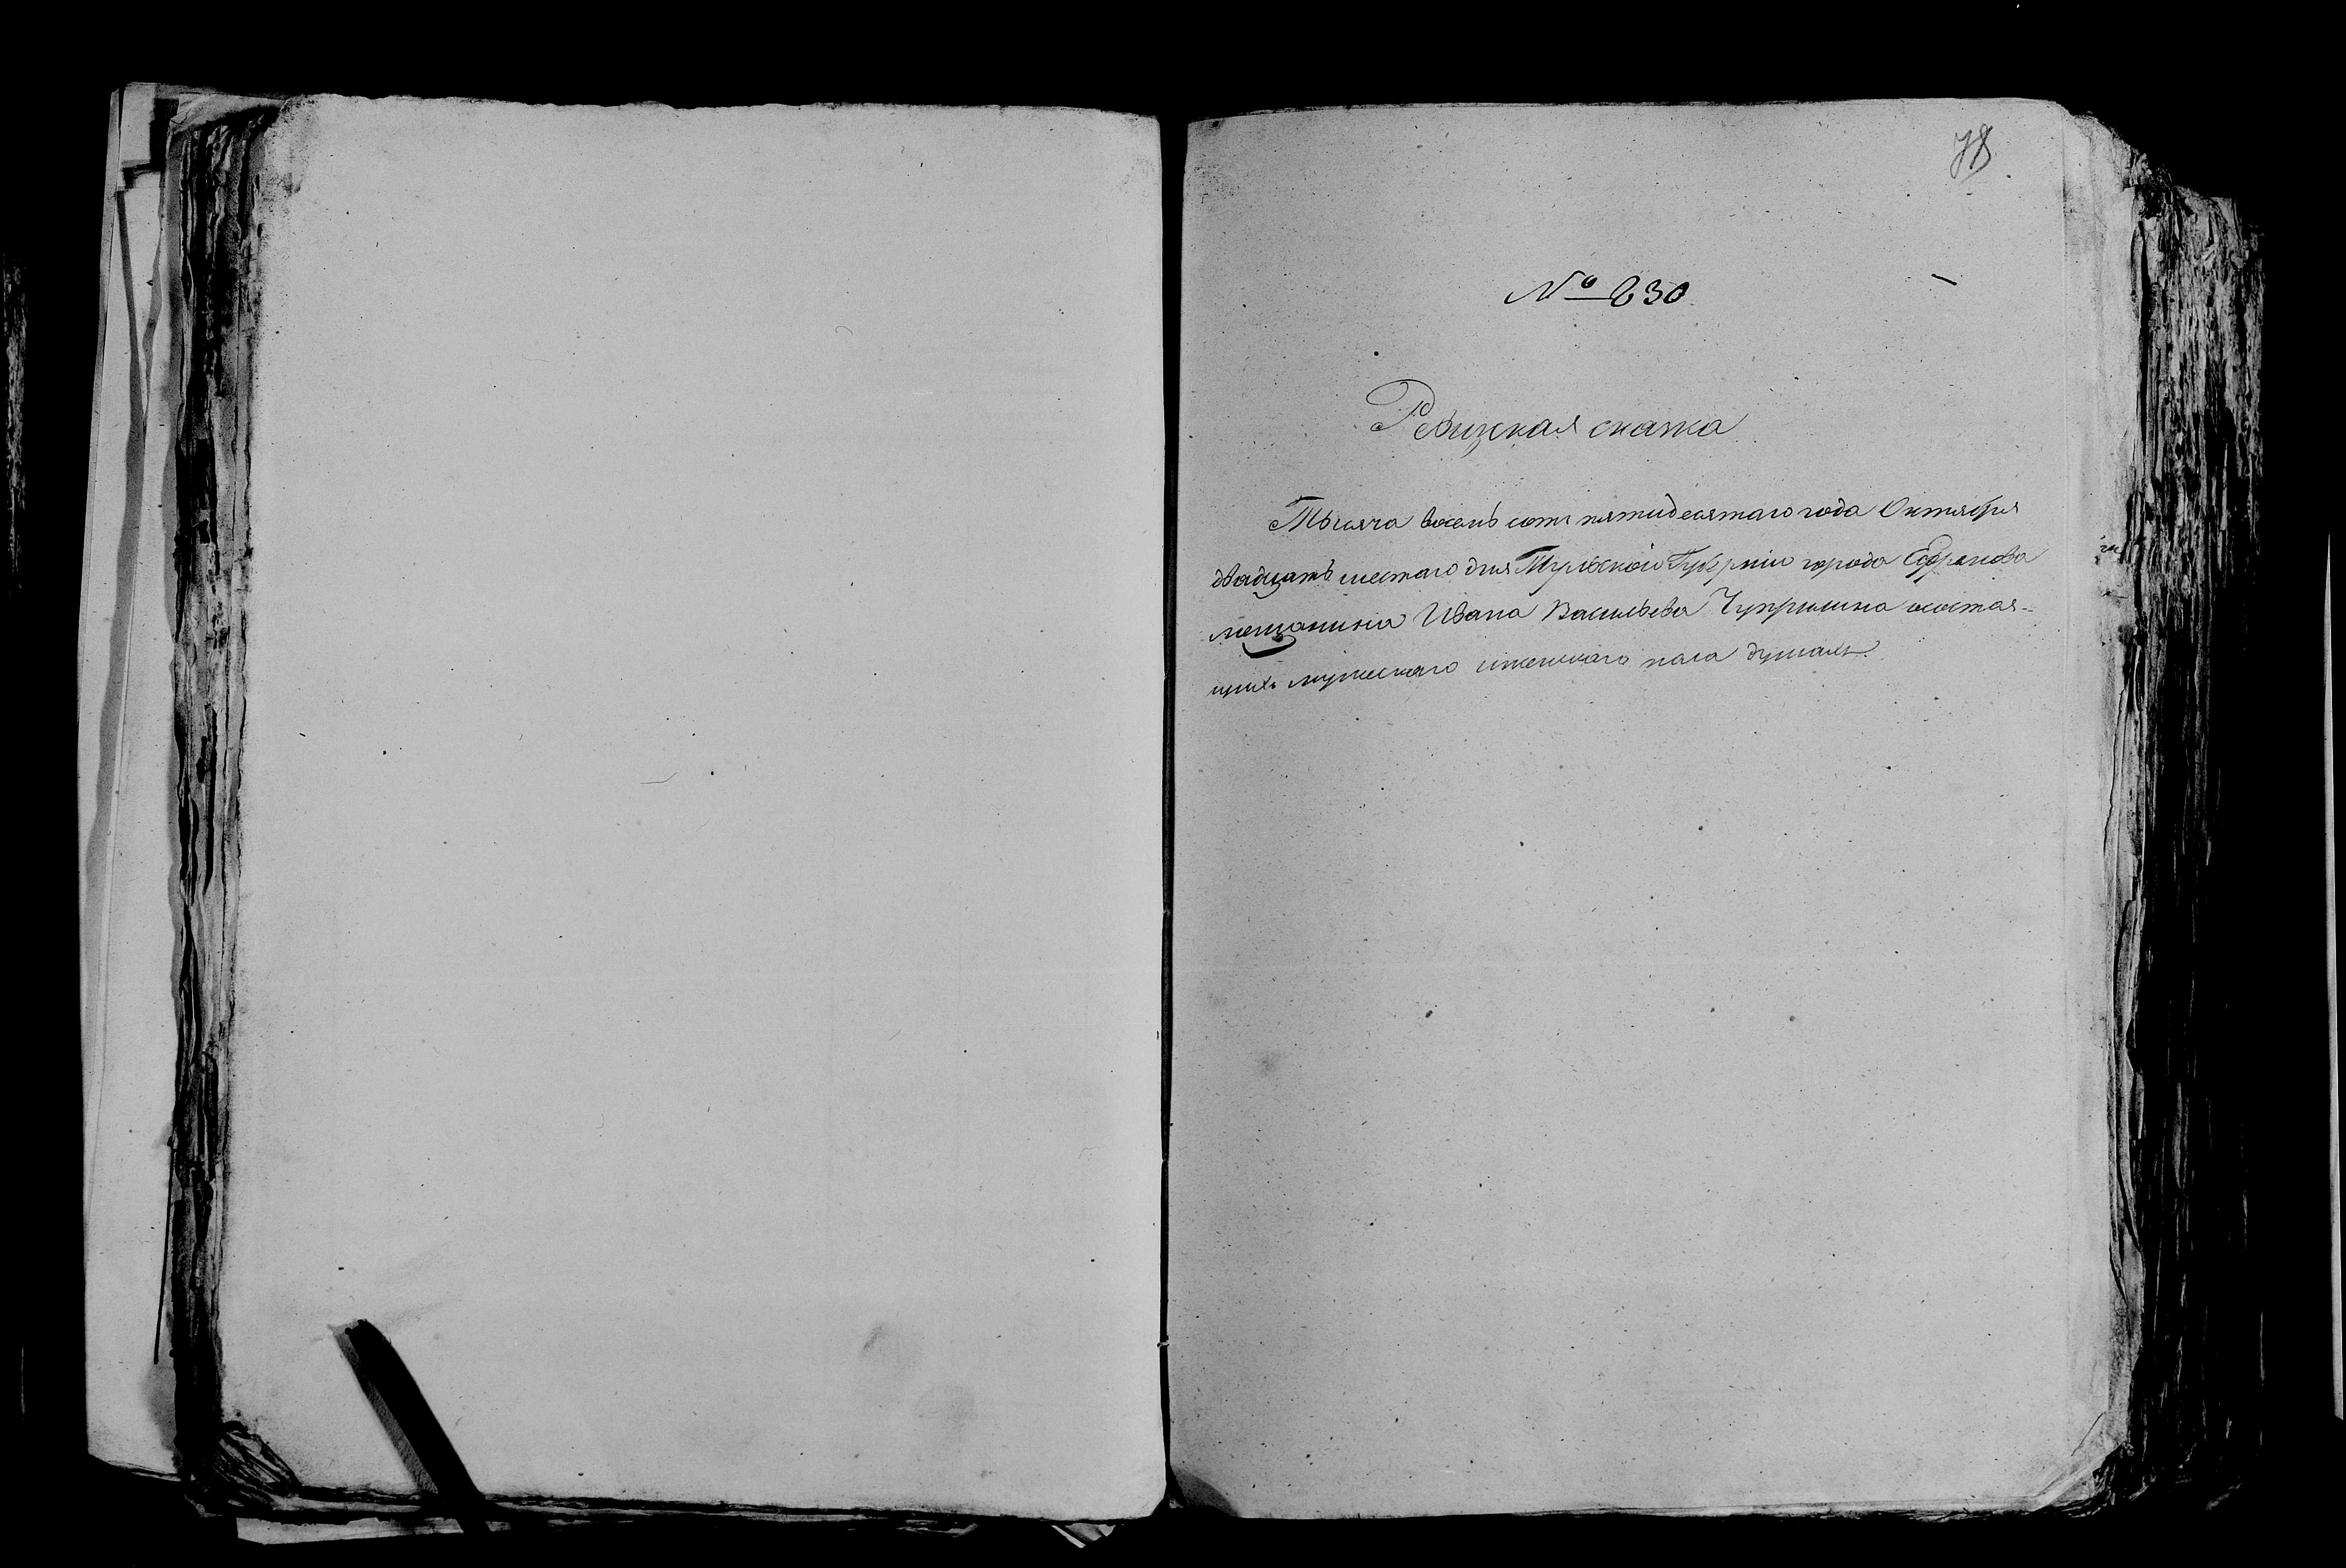 78
№ 230
Ревизская сказка
Тысяча восемь сотъ пятидесятаго года Октября
двадцать шестаго дня Тульской Губерніи города Ефремова
мещанина Ивана Васильева Чупрынина осостоя-
щихъ мужескаго иженскаго пола душахъ.